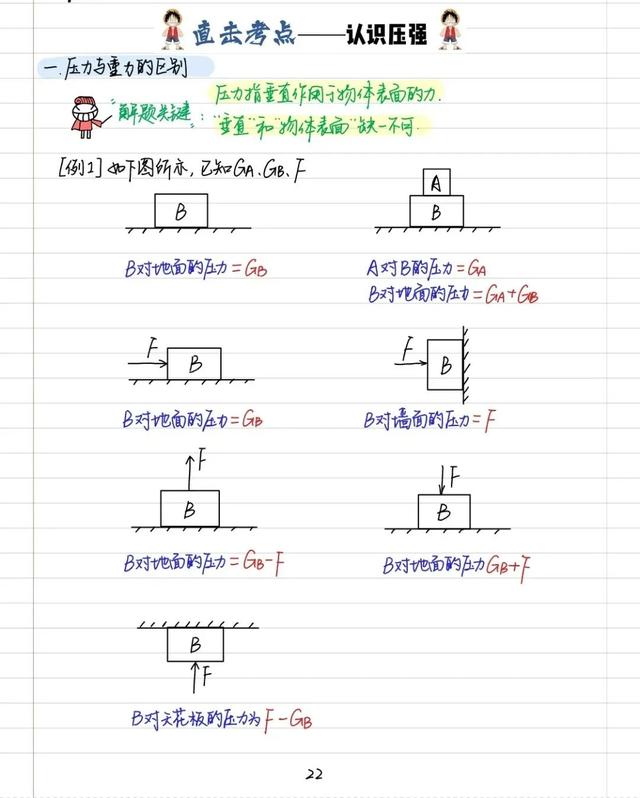 直击考点——认识压强
一.压力与重力的区别
压力指垂直作用于物体表面的力.
"解题关键":"垂直"和"物体表面"缺一不可.
[例1]如下图所示,已知GA、GB、F
B
A
B
B对地面的压力=GB
A对B的压力=GA
B对地面的压力=GA+GB
F B
F B
B对地面的压力=GB
B对墙面的压力=F
F
B
F
B
B对地面的压力=GB-F
B对地面的压力GB+F
B
F
B对天花板的压力为F-GB
22